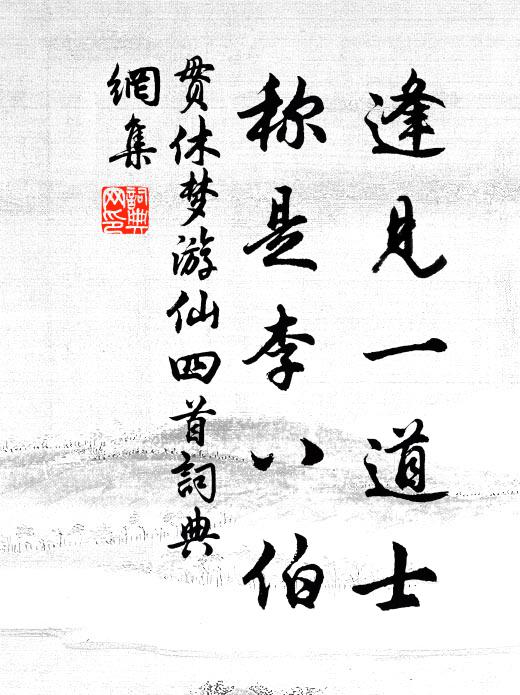 逢见一道士
称是李八伯
贯休梦游仙四首詞典
網集
詞典
网印